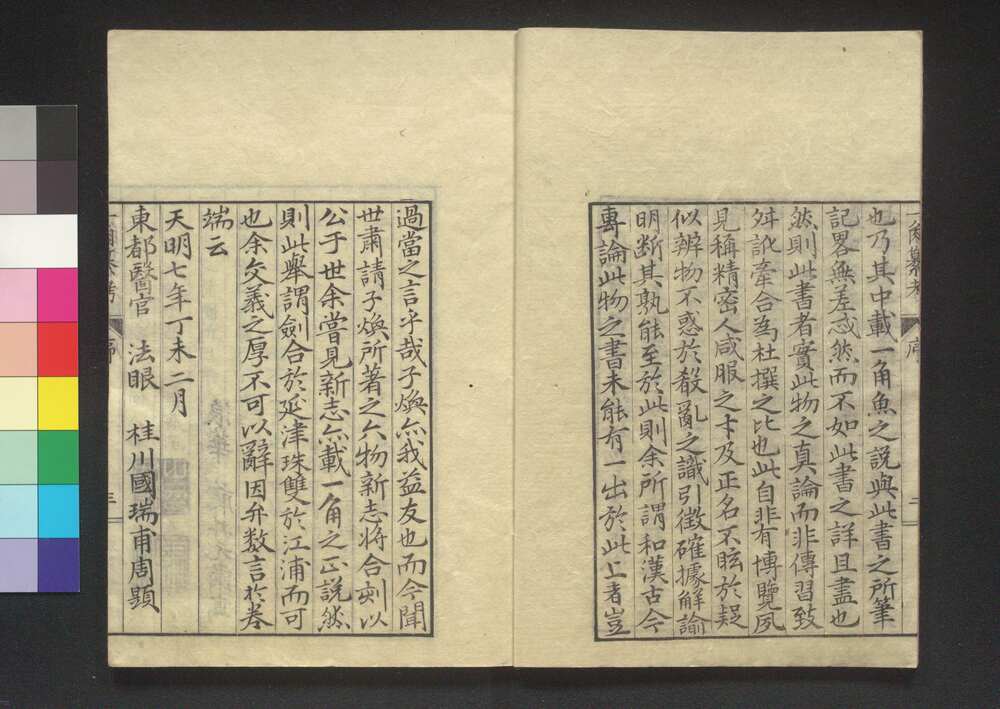 也乃其中載一角魚之説與此書之所筆
記畧無差忒然而不如此書之詳且盡也
然則此書者實此物之真論而非傳習致
舛訛牽合為杜撰之比也此自非有博覽夙
見稱精密人咸服之才及正名不眩於疑
似辨物不惑於殽亂之識引徴確據解諭
明断其孰能至於此則余所謂和漢古今
專論此物之書未能有一出於此上者豈
過當之言乎哉子煥亦我益友也而今聞
世肅請子煥所著之六物新志将合刻以
公于世余嘗見新志亦載一角之正説然
則此舉謂劍合於延津珠雙於江浦而可
也余交義之厚不可以辭因弁数言於巻
端云
天明七年丁未二月
東都醫官 法眼 桂川國瑞甫周題
一角纂考 序 二
一角纂考 序 三